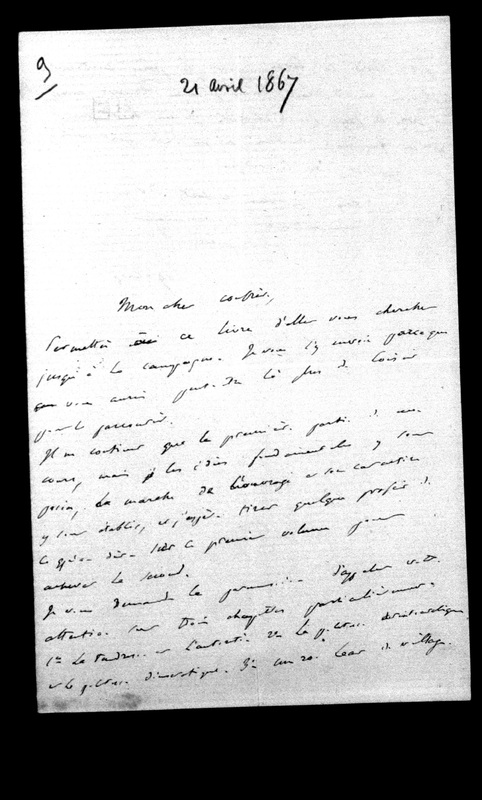 9
21 avril 1867
Mon cher confrère,
Permettez à ce livre d'aller vous chercher
jusqu'à la campagne. Je vous l'y envoie parce que
vous aurez peut-être là plus de loisir
pour le parcourir.
Il ne contient que la première partie de mon
cours, mais les idées fondamentales y sont
la marche de l'ouvrage et son caractère
y sont établis, et j'espère tirer quelque profit de
ce qu'on dira sur ce premier volume pour
achever le second.
Je vous demande la permission d'appeler votre
attention sur trois chapitres particulièrement
1° 2° le
et le 3° de village.